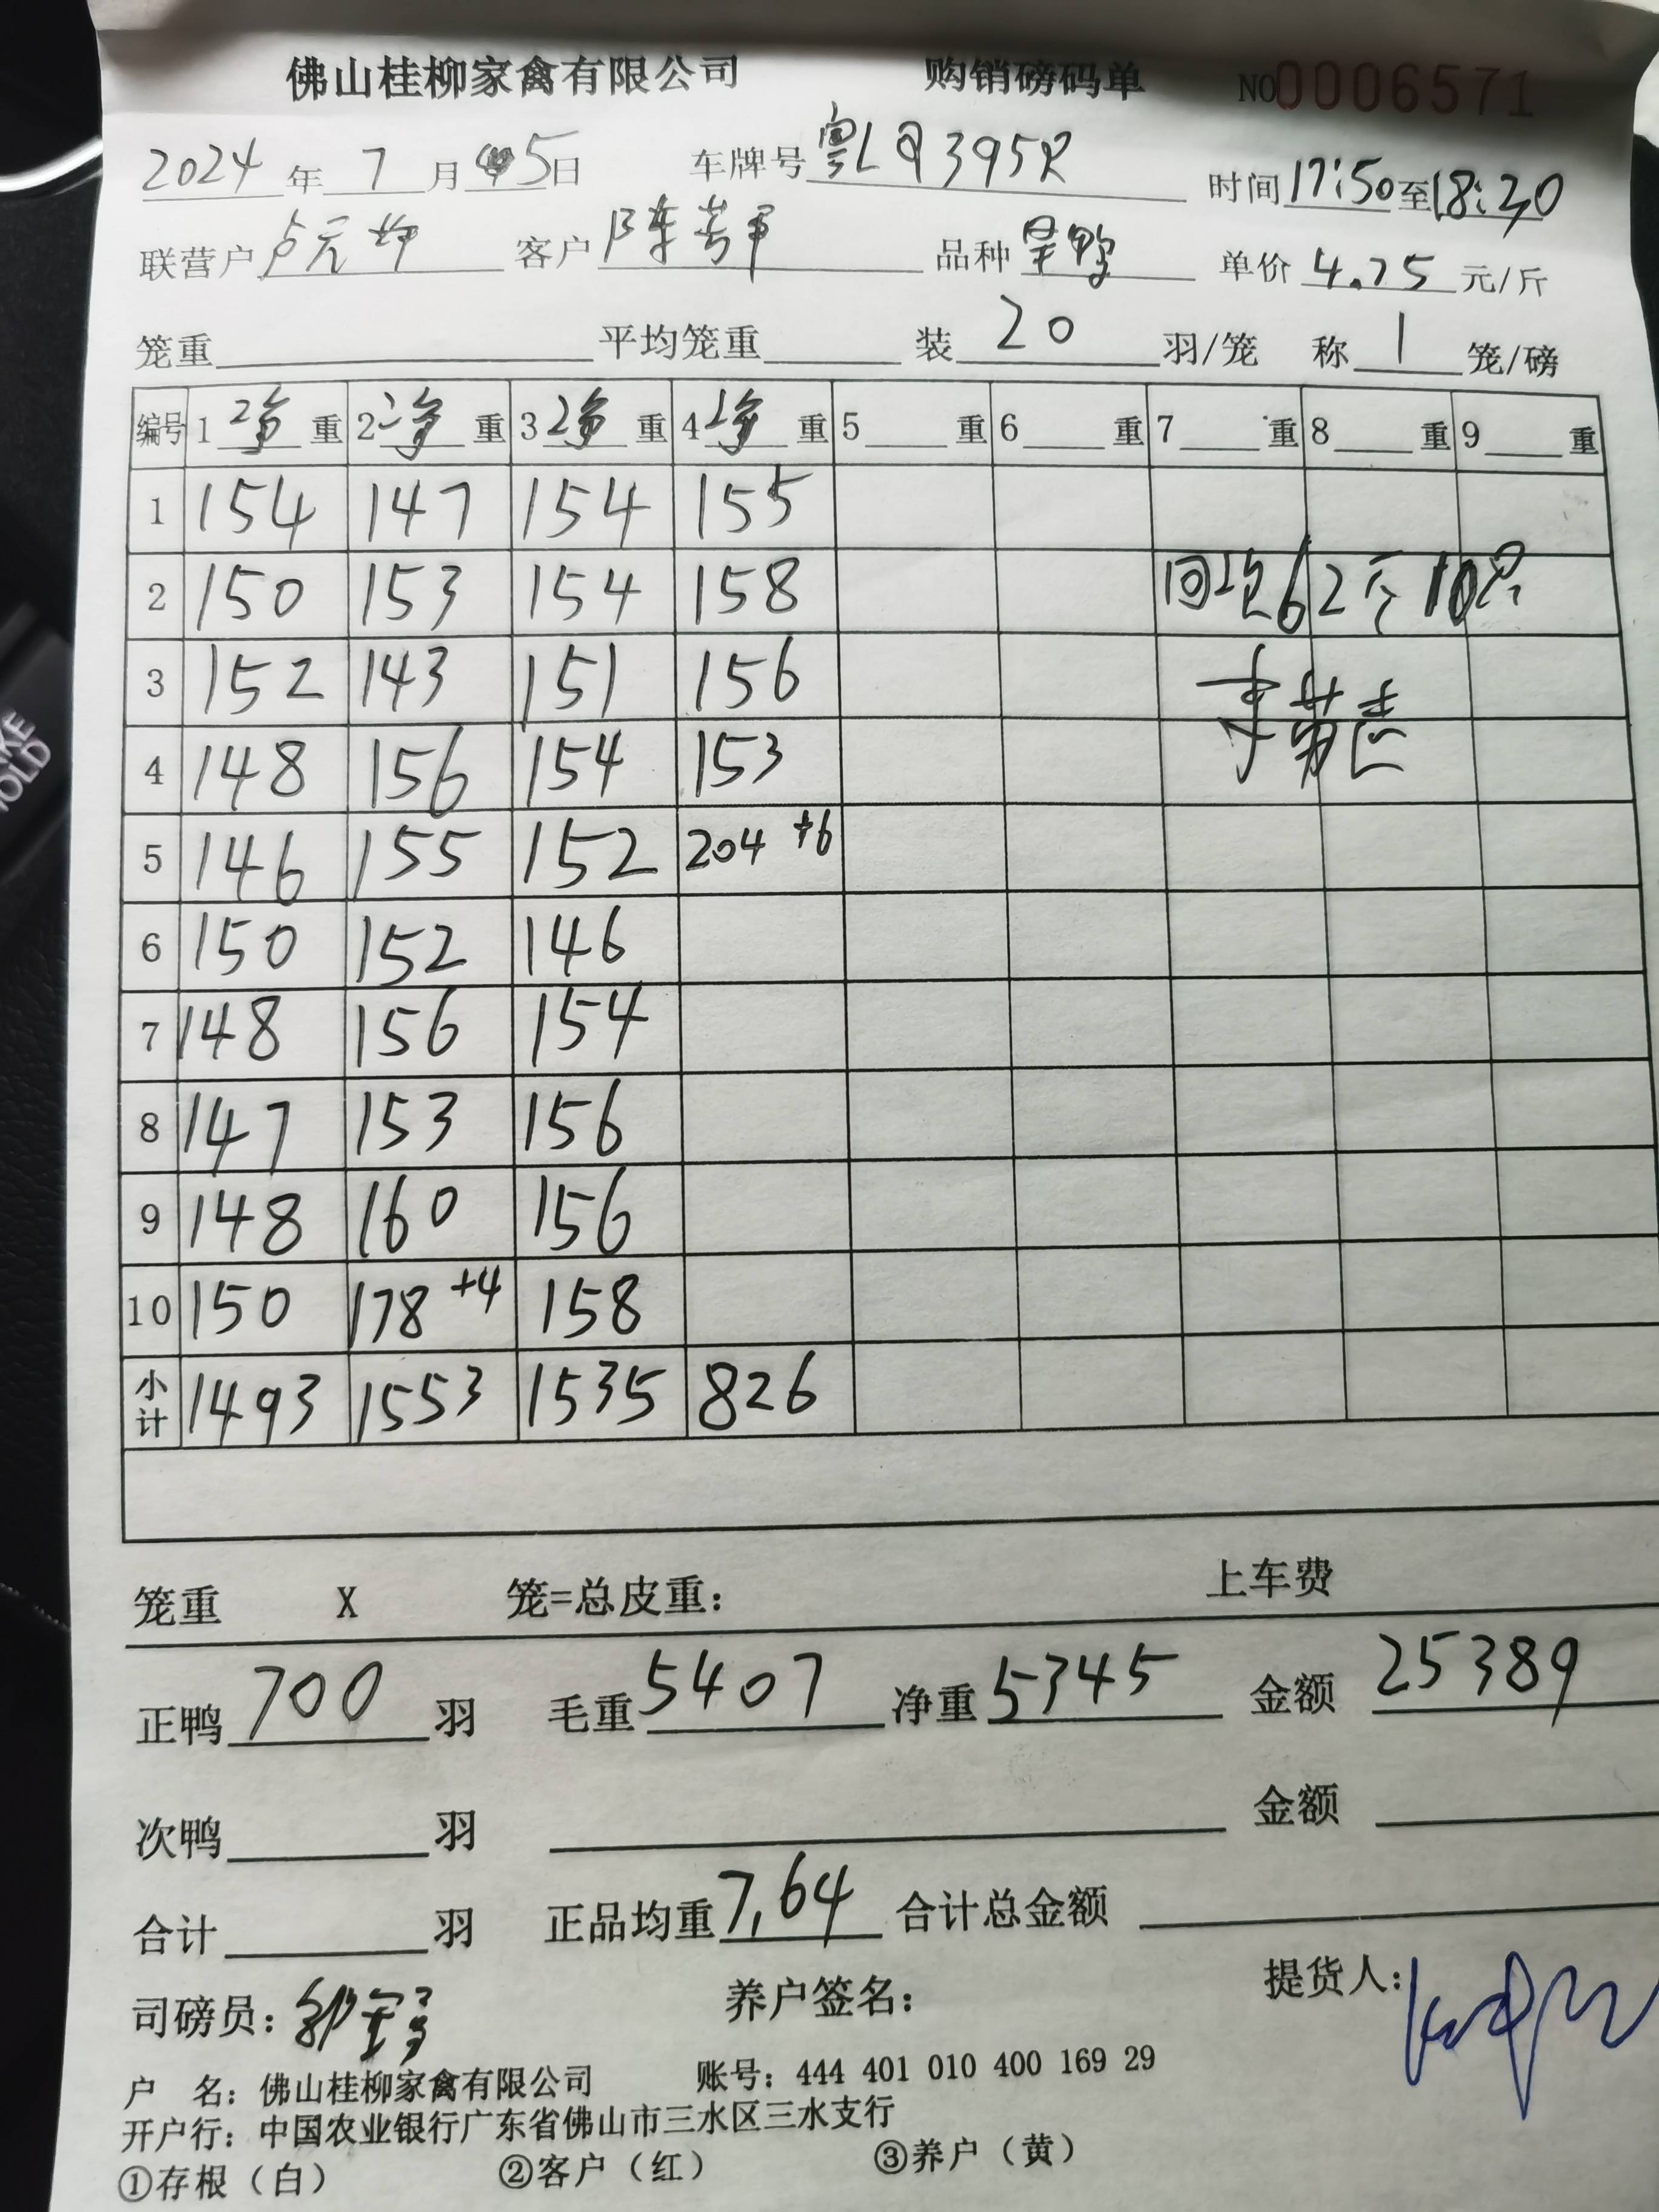 佛山桂柳家禽有限公司 购销磅码单 NO0006571
2024 年 7 月 5日 车牌号 粤LQ395R 时间 17:50 至 18:20
联营户 卢元 客户 陈 品种 单价 4.75 元/斤
笼重 平均笼重 装 20 羽/笼 称 1 笼/磅
编号 1 净 重 2 净 重 3 净 重 4 净 重 5 重 6 重 7 重 8 重 9 重
1 154 147 154 155
2 150 153 154 158 回次62斤10只
3 152 143 151 156
4 148 156 154 153
5 146 155 152 204 +6
6 150 152 146
7 148 156 154
8 147 153 156
9 148 160 156
10 150 178 +4 158
小计 1493 1553 1535 826
笼重 X 笼=总皮重: 上车费
正鸭 700 羽 毛重 5407 净重 5345 金额 25389
次鸭 羽 金额
合计 羽 正品均重 7,64 合计总金额
司磅员: 养户签名: 提货人:
户 名: 佛山桂柳家禽有限公司 账号: 444 401 010 400 169 29
开户行: 中国农业银行广东省佛山市三水区三水支行
①存根（白） ②客户（红） ③养户（黄）